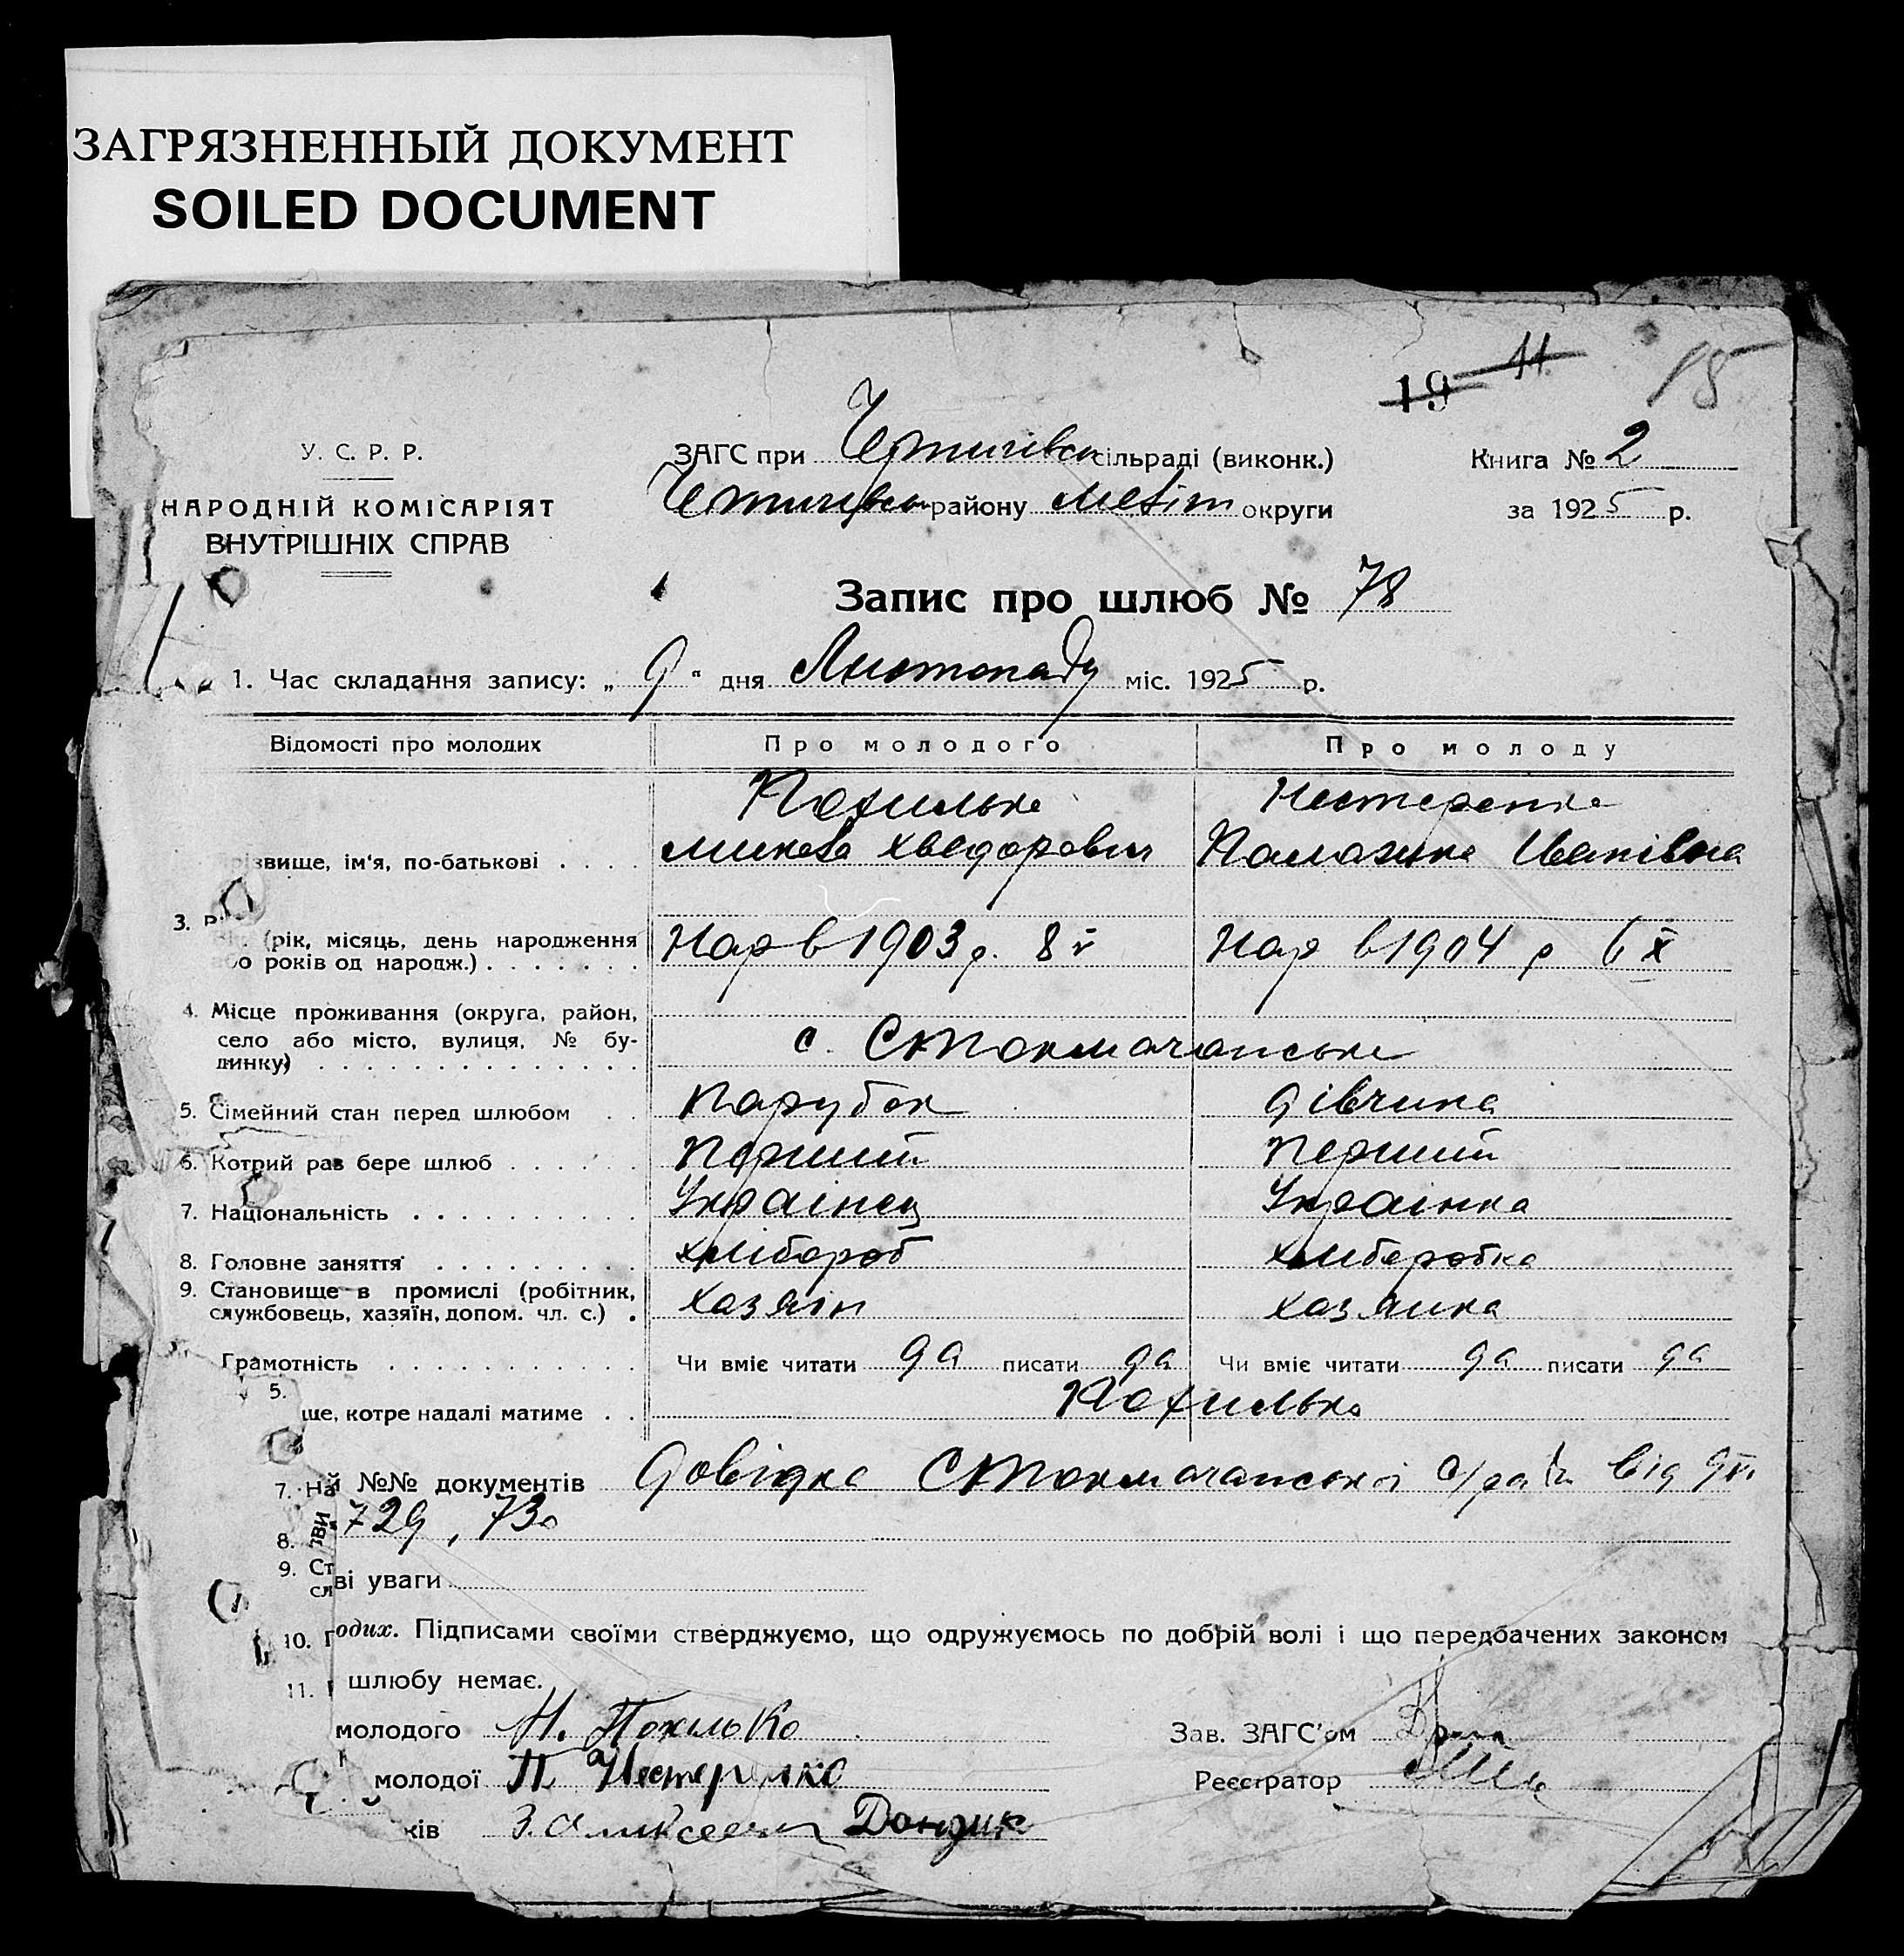 ЗАГРЯЗНЕННЫЙ ДОКУМЕНТ
SOILED DOCUMENT
19 11 18
У. С. Р. Р.
НАРОДНІЙ КОМІСАРІЯТ
ВНУТРІШНІХ СПРАВ
ЗАГС при сільраді (виконк.)
району округи
Книга № 2
за 1925 р.
Запис про шлюб № 78
1. Час складання запису: „ 9 “ дня Листопаду міс. 1925 р.
Відомості про молодих Про молодого Про молоду
Похилько Нестеренко
різвище, ім'я, по-батькові . . . . Микола Хведорович Палажка Іванівна
3. Р
Вік (рік, місяць, день народження Нар в 1903 р. 8 V Нар в 1904 р 6 X
або років од народж.) . . . . . . .
4. Місце проживання (округа, район,
село або місто, вулиця, № бу- с. Стокмачанське
динку) . . . . . . . . . . . . . .
5. Сімейний стан перед шлюбом . . парубок дівчина
6. Котрий раз бере шлюб . . . . . . перший перший
7. Національність . . . . . . . . . . Українец Українка
8. Головне заняття . . . . . . . . . хлібороб хліборобка
9. Становище в промислі (робітник,
службовець, хазяїн, допом. чл. с.) . хазяін хазяйка
Грамотність . . . . . . . . . . . Чи вміє читати да писати да Чи вміє читати да писати да
5.
ще, котре надалі матиме . . Похилько
7. На й №№ документів Довідка Стокмачанської с/ради від
8. зви 729, 730
9. Ст
сл ві уваги
10. Г одих. Підписами своїми стверджуємо, що одружуємось по добрій волі і що передбачених законом
11. шлюбу немає.
молодого Н. Похилько Зав. ЗАГС'ом
молодої П Нестеренко Реєстратор
ків